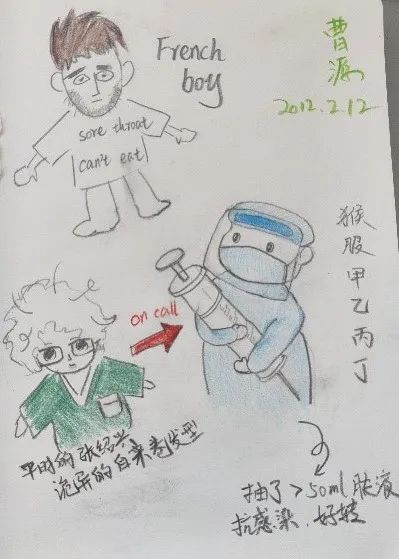 French
boy
曹源
2012.2.12
sore throat
can't eat
猴服甲乙丙丁
on call
平时的张绍兴
诡异的自来卷发型
抽了>50ml脓液
抗感染，好转